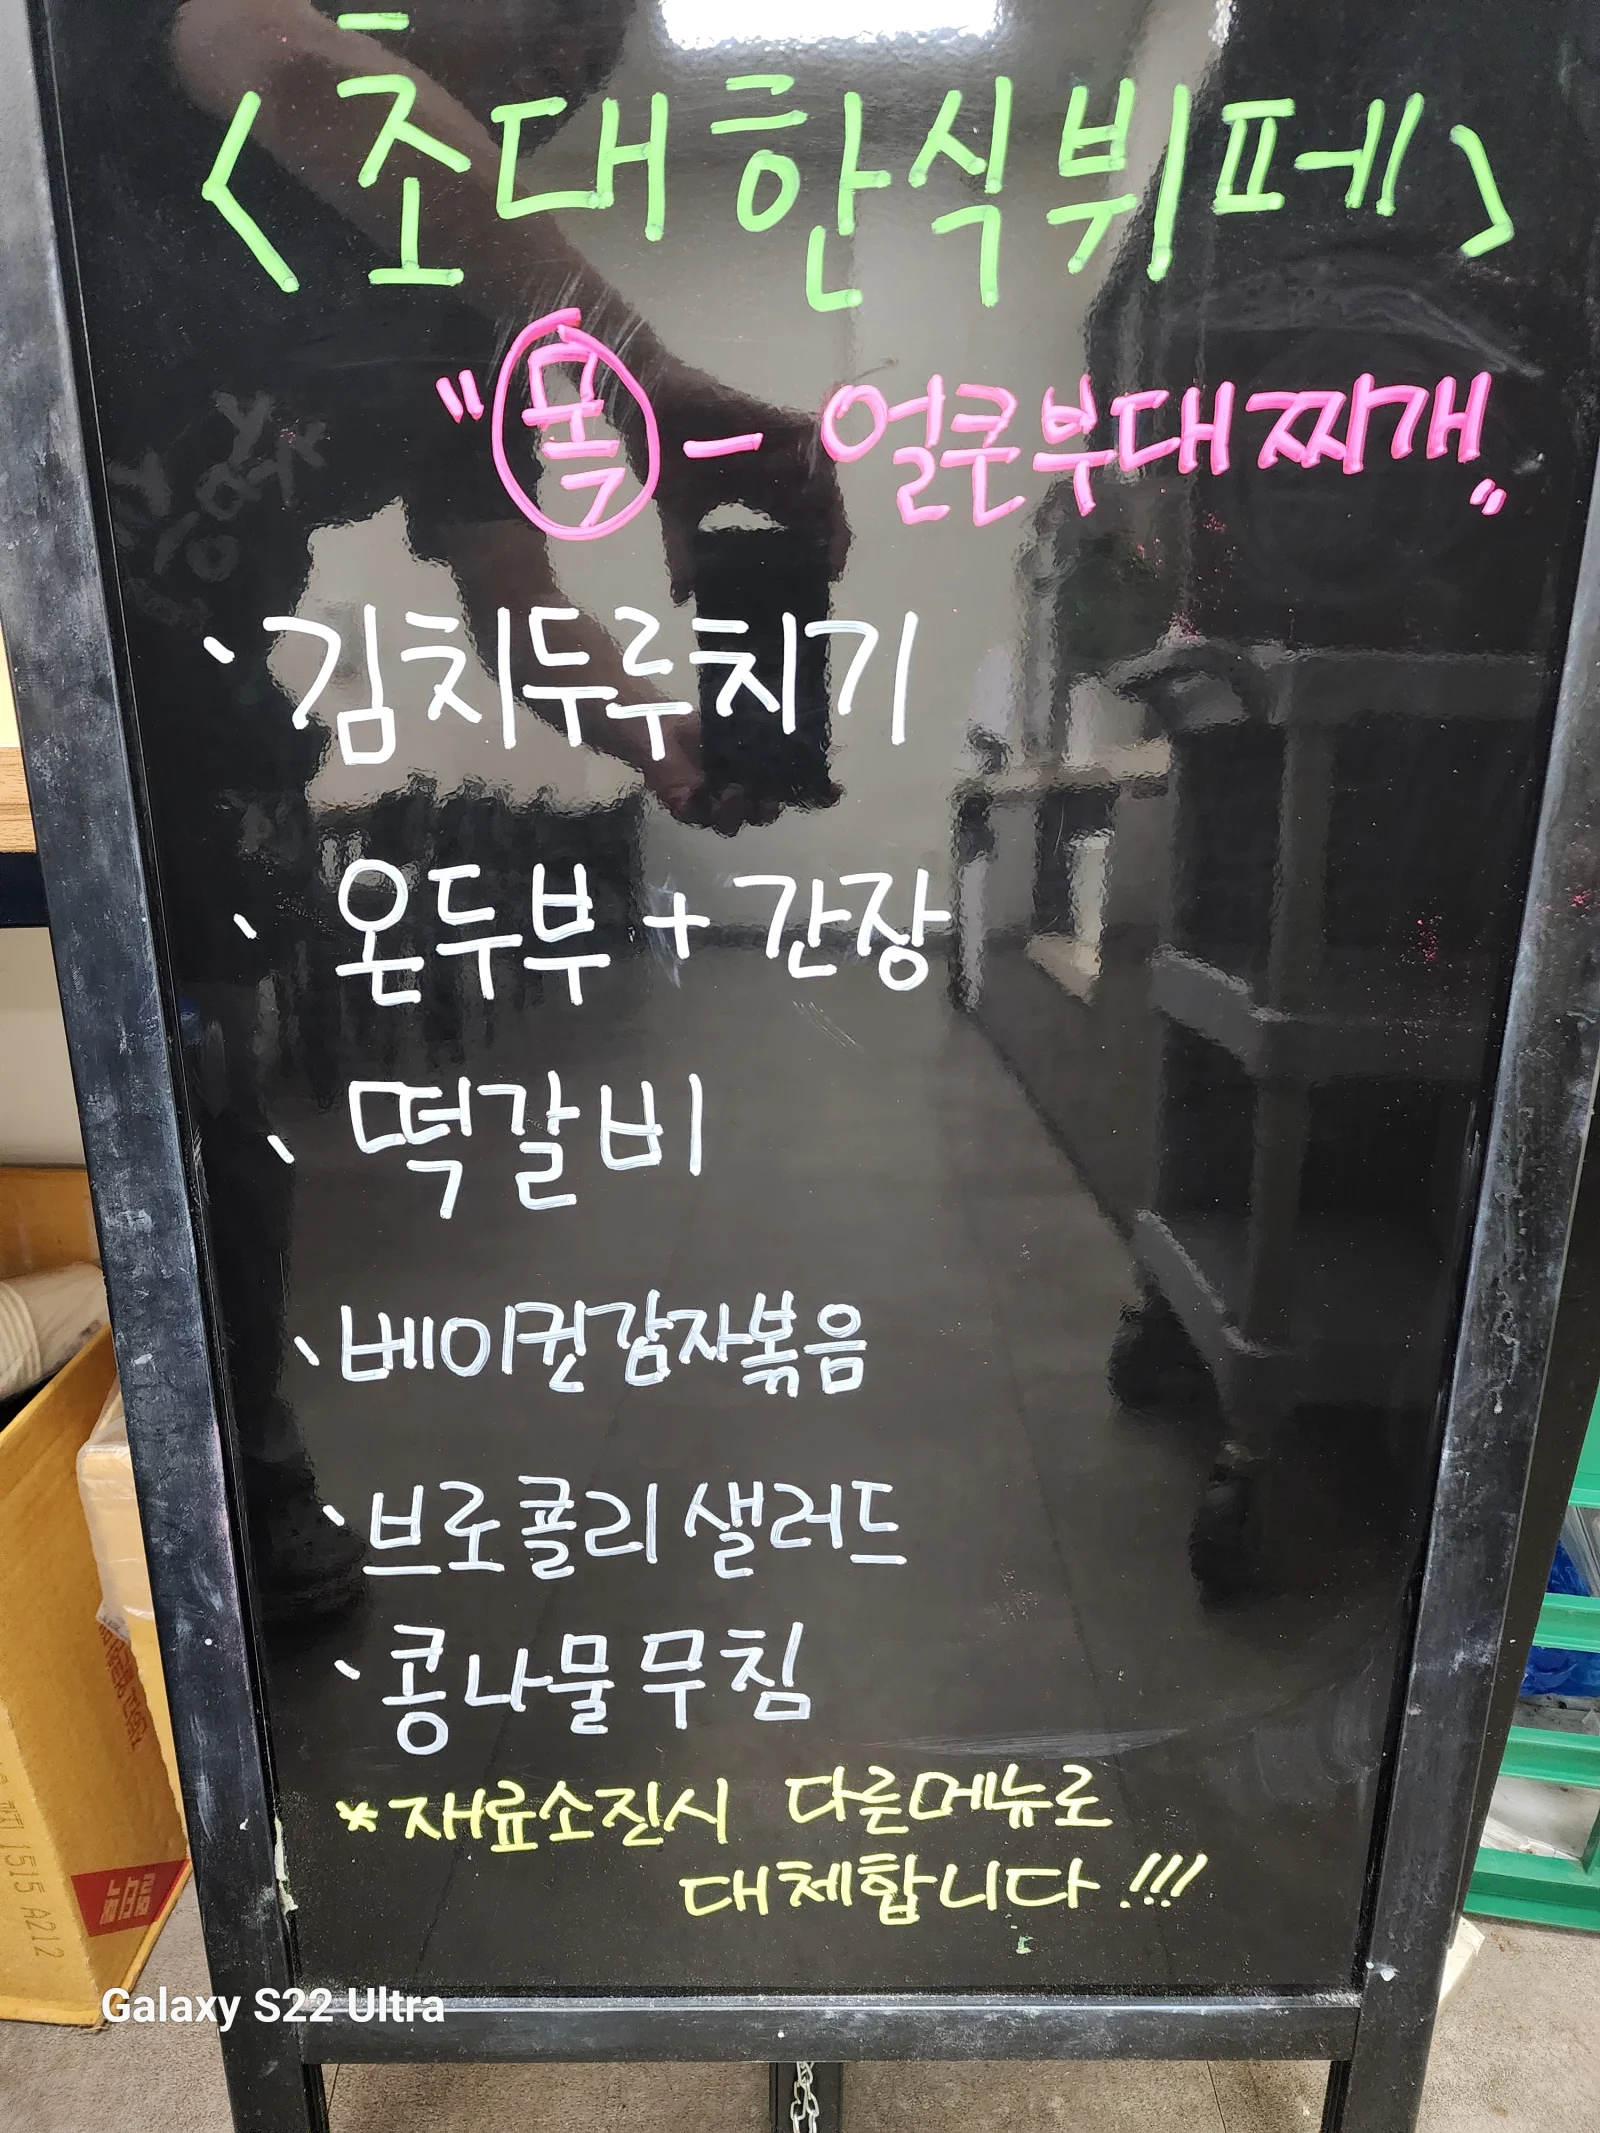 <초대한식뷔페>
"목 - 얼큰부대찌개"
、김치두루치기
、온두부 + 간장
、떡갈비
、베이컨감자볶음
、브로콜리 샐러드
、콩나물무침
*재료소진시 다른메뉴로
대체합니다!!!
1515 A212
Galaxy S22 Ultra